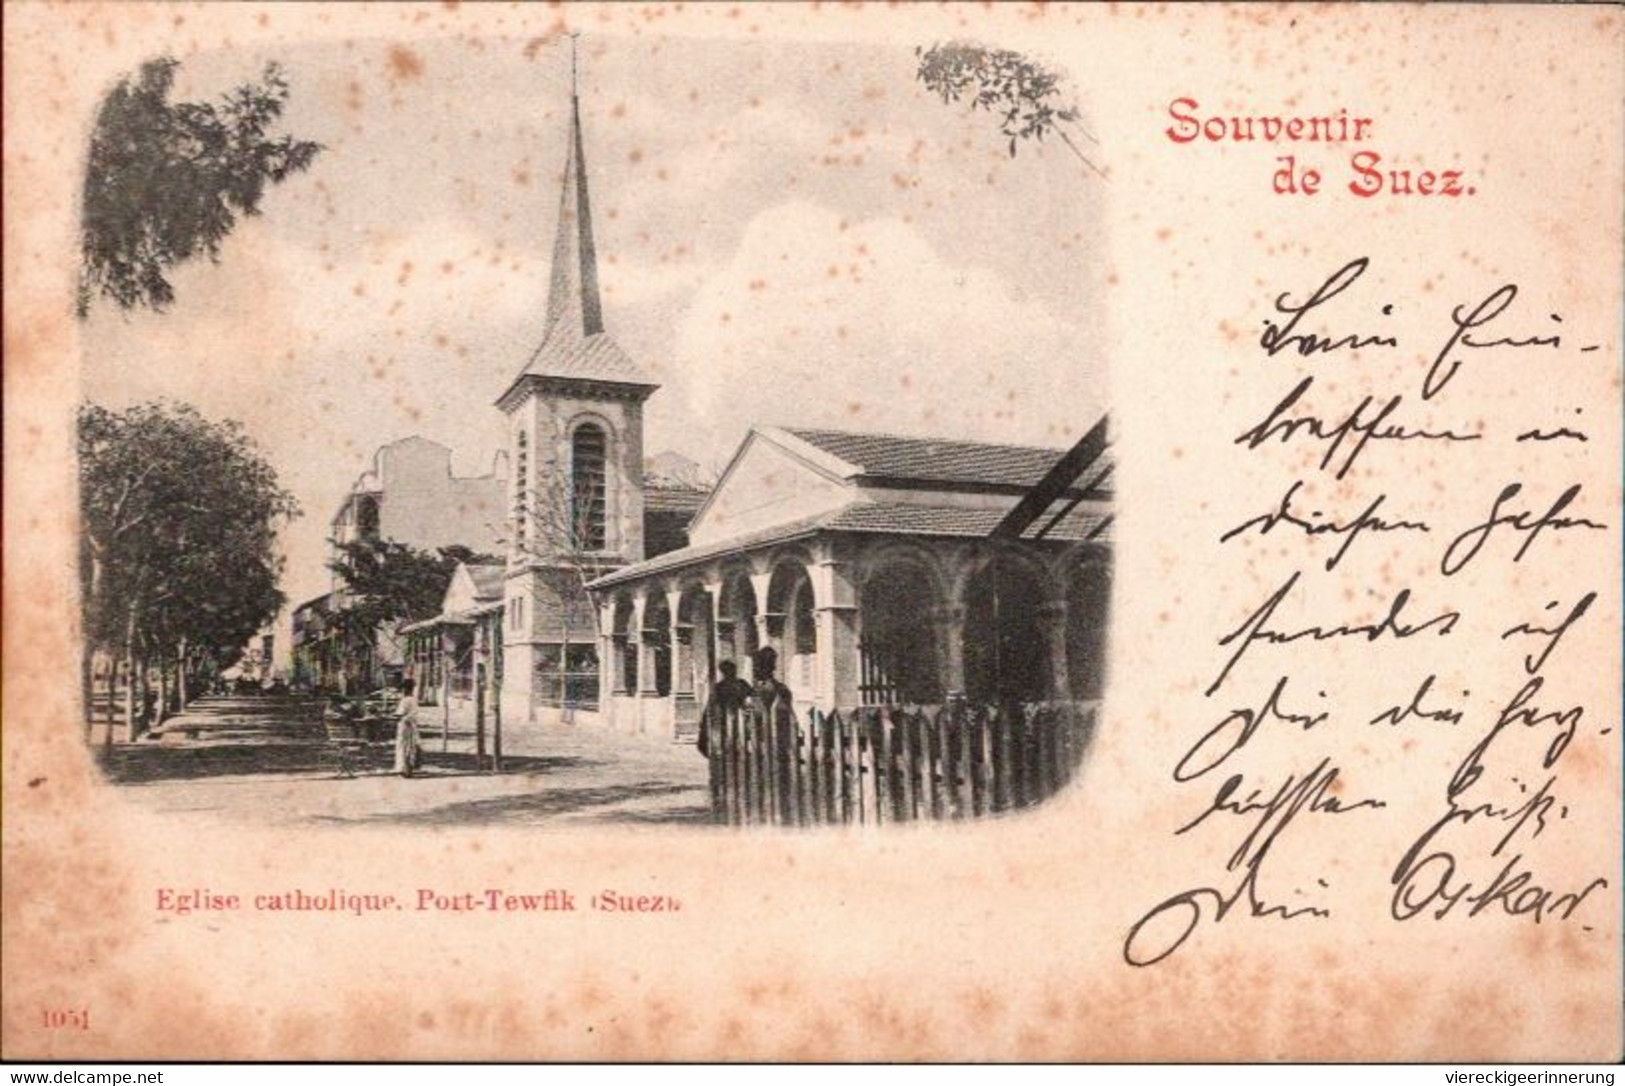 Souvenir
de Suez.
Beim Ein-
treffen in
diesem Hafen
sendet ich
Dir die herz-
lichsten Grüße.
Dein Oskar.
Eglise catholique. Port-Tewfik (Suez).
1051
www.delcampe.net
viereckigeerinnerung